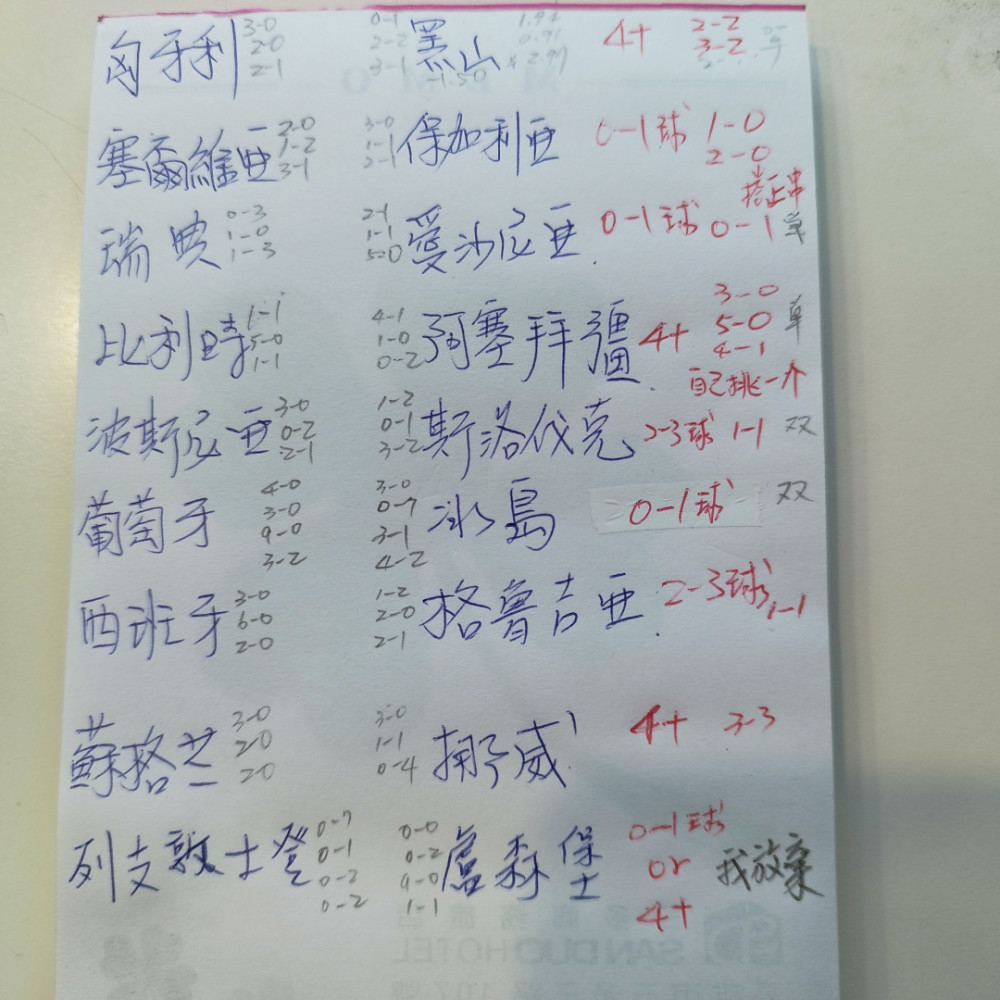 匈牙利 3-0 2-0 2-1 0-1 2-2 3-1 黑山 -1.50 1.94 0.91 2.97 4+ 2-2 3-2
塞爾維亞 2-0 1-2 3-1 3-0 1-1 2-1 保加利亚 0-1球 1-0 2-0 搭正串
瑞典 0-3 1-0 1-3 2-1 1-1 5-0 愛沙尼亚 0-1球 0-1 单
比利時 1-1 5-0 1-1 4-1 1-0 0-2 阿塞拜疆 4+ 3-0 5-0 4-1 单 自己挑一个
波斯尼亚 3-0 0-2 2-1 1-2 0-1 3-2 斯洛伐克 2-3球 1-1 双
葡萄牙 4-0 3-0 9-0 3-2 3-0 0-7 3-1 4-2 冰島 0-1球 双
西班牙 3-0 6-0 2-0 1-2 2-0 2-1 格魯吉亚 2-3球 1-1
蘇格兰 3-0 2-0 2-0 3-0 1-1 0-4 挪威 4+ 3-3
列支敦士登 0-7 0-1 0-2 0-2 0-0 0-2 9-0 1-1 盧森堡 0-1球 or 4+ 我放棄
SAN DUO HOTEL